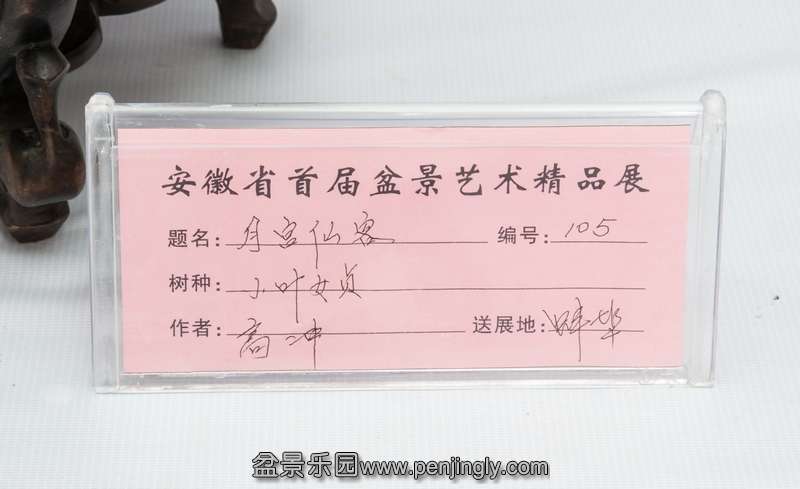 安徽省首届盆景艺术精品展
题名: 月宫仙客 编号: 105
树种: 小叶女贞
作者: 高冲 送展地: 蚌埠
盆景乐园www.penjingly.com